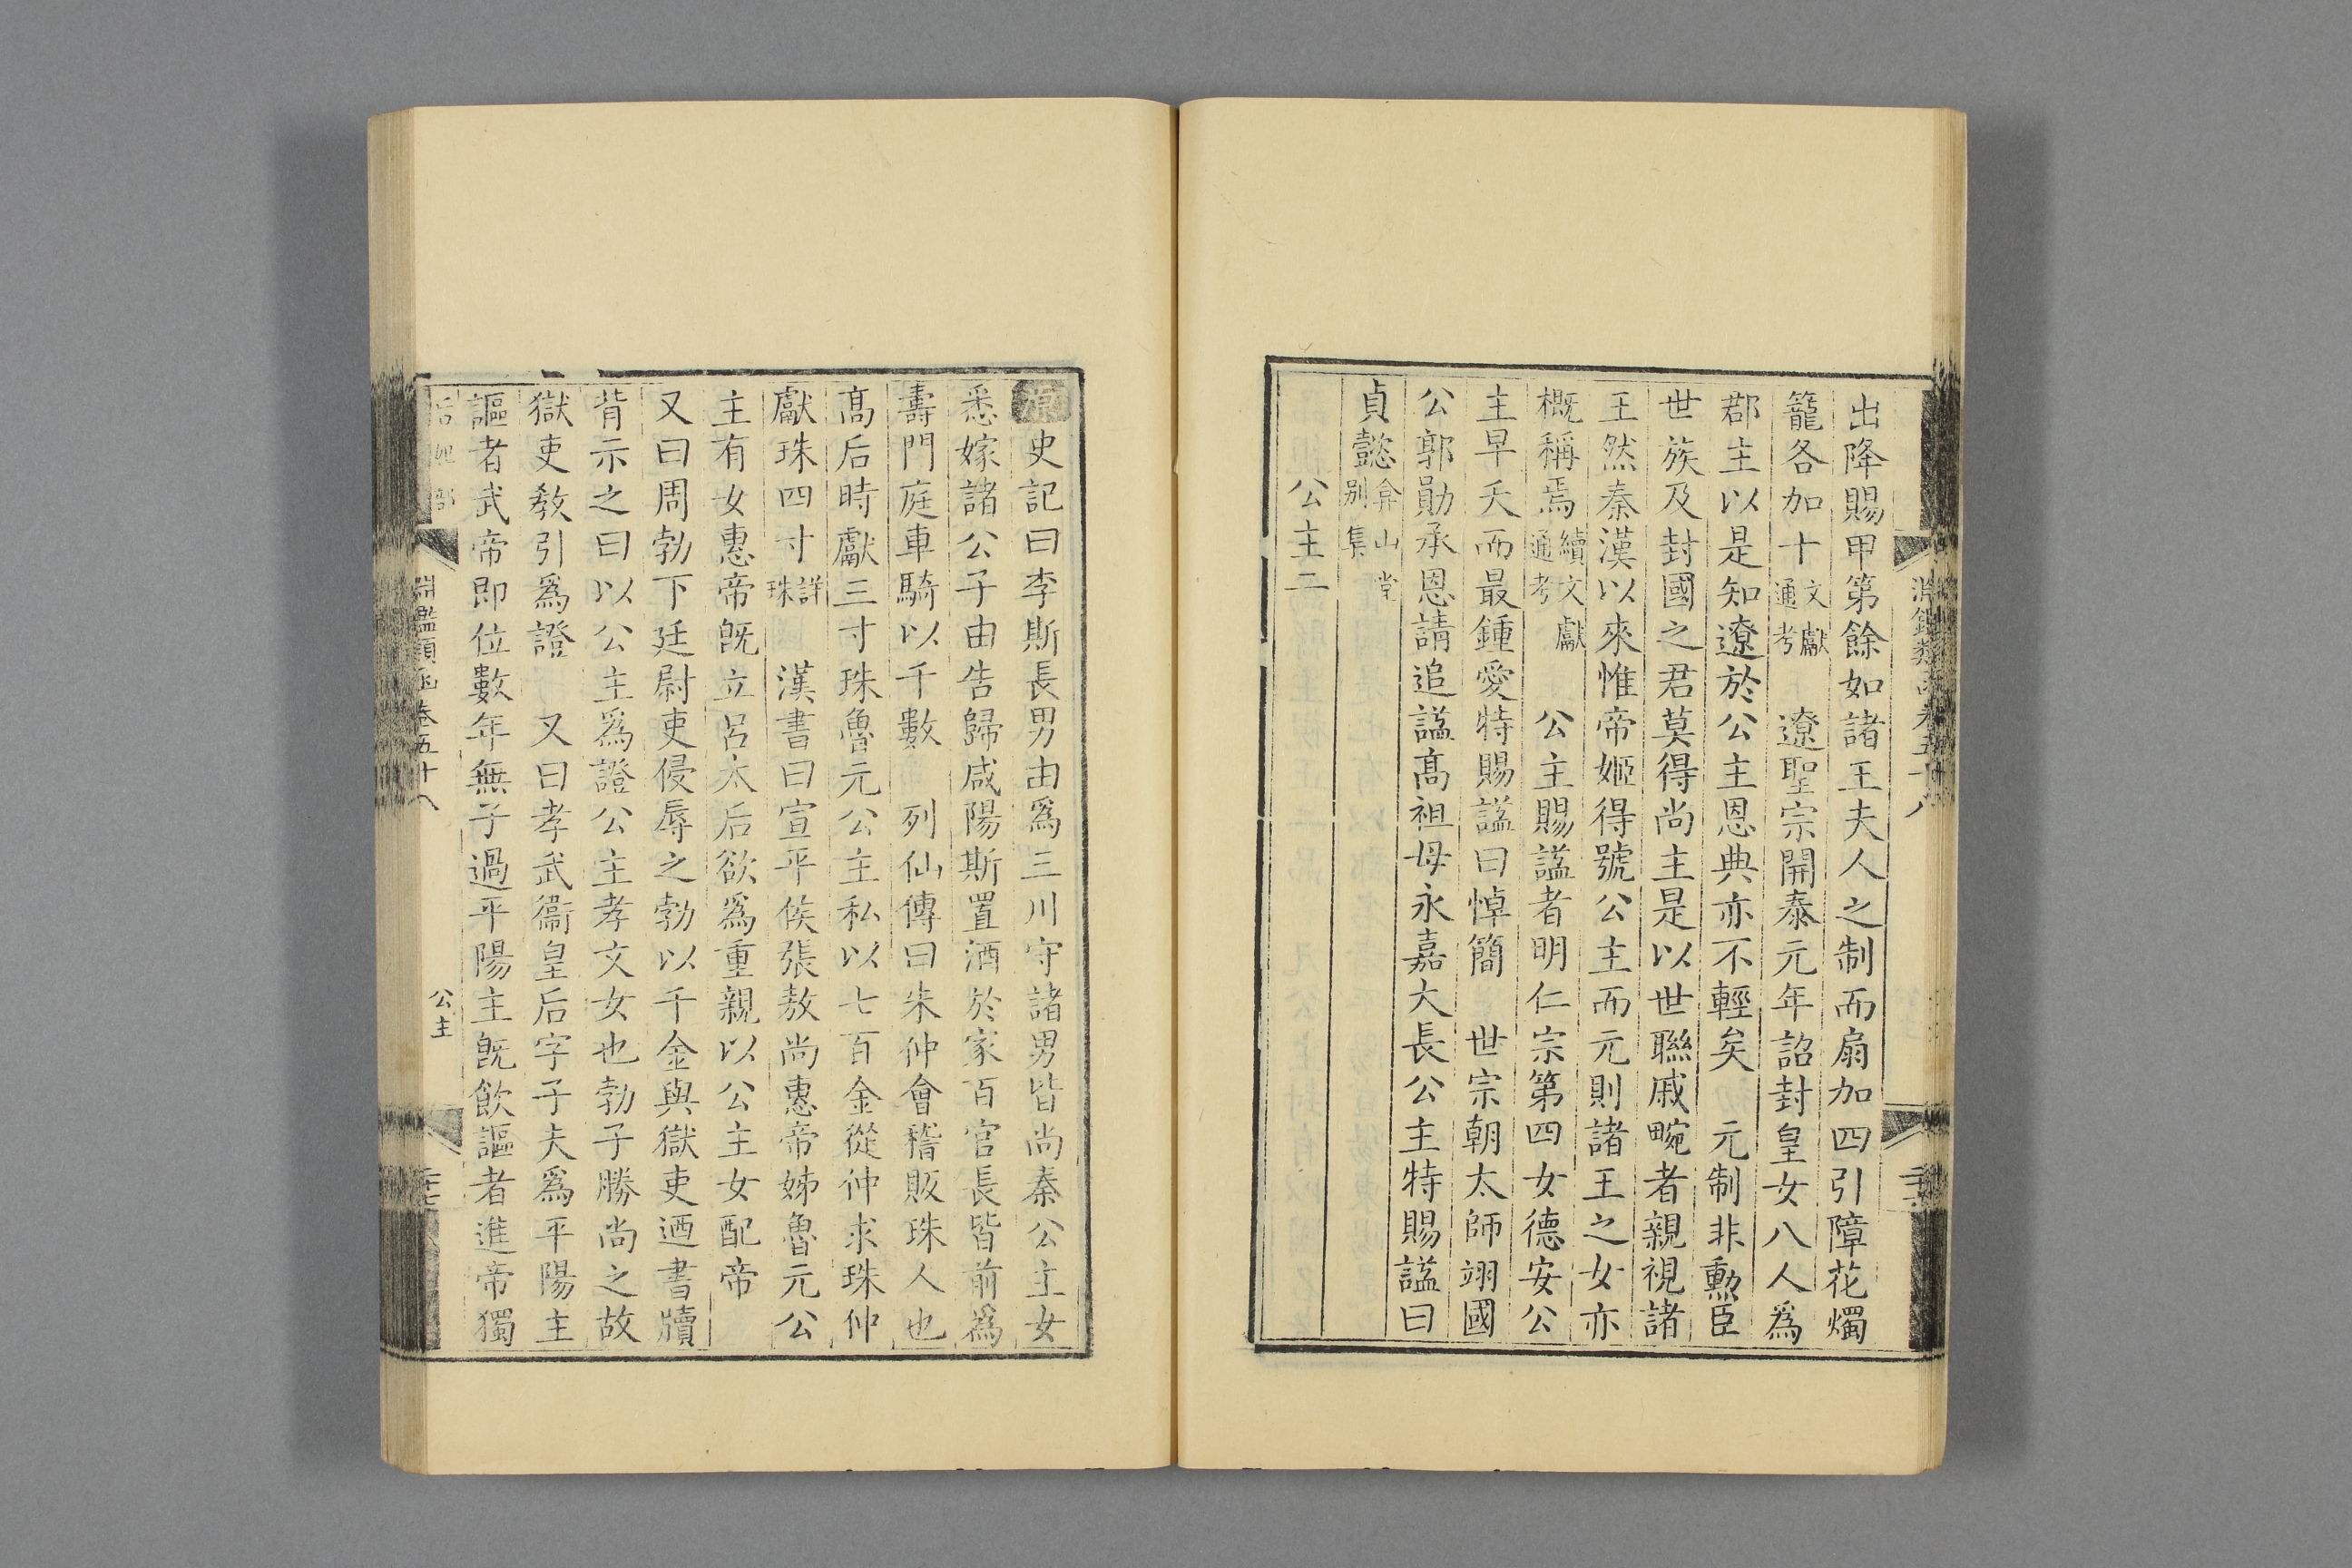 淵鑑類函卷五十八
出降賜甲第餘如諸王夫人之制而扇加四引障花燭
籠各加十文獻通考　遼聖宗開泰元年詔封皇女八人爲
郡主以是知遼於公主恩典亦不輕矣　元制非勳臣
世族及封國之君莫得尚主是以世聯戚畹者親視諸
王然秦漢以來惟帝姬得號公主而元則諸王之女亦
概稱焉續文獻通考　公主賜謚者明仁宗第四女德安公
主早夭而最鍾愛特賜謚曰悼簡　世宗朝太師翊國
公郭勛承恩請追謚高祖母永嘉大長公主特賜謚曰
貞懿弇山堂别集
公主二
原史記曰李斯長男由爲三川守諸男皆尚秦公主女
悉嫁諸公子由告歸咸陽斯置酒於家百官長皆前爲
壽門庭車騎以千數　列仙傳曰朱仲會稽販珠人也
高后時獻三寸珠魯元公主私以七百金從仲求珠仲
獻珠四寸詳珠　漢書曰宣平侯張敖尚惠帝姊魯元公
主有女惠帝既立呂太后欲爲重親以公主女配帝
又曰周勃下廷尉吏侵辱之勃以千金與獄吏迺書牘
背示之曰以公主爲證公主孝文女也勃子勝尚之故
獄吏教引爲證　又曰孝武衞皇后字子夫爲平陽主
謳者武帝即位數年無子過平陽主旣飲謳者進帝獨
后妃部
淵鑑類函卷五十八
公主